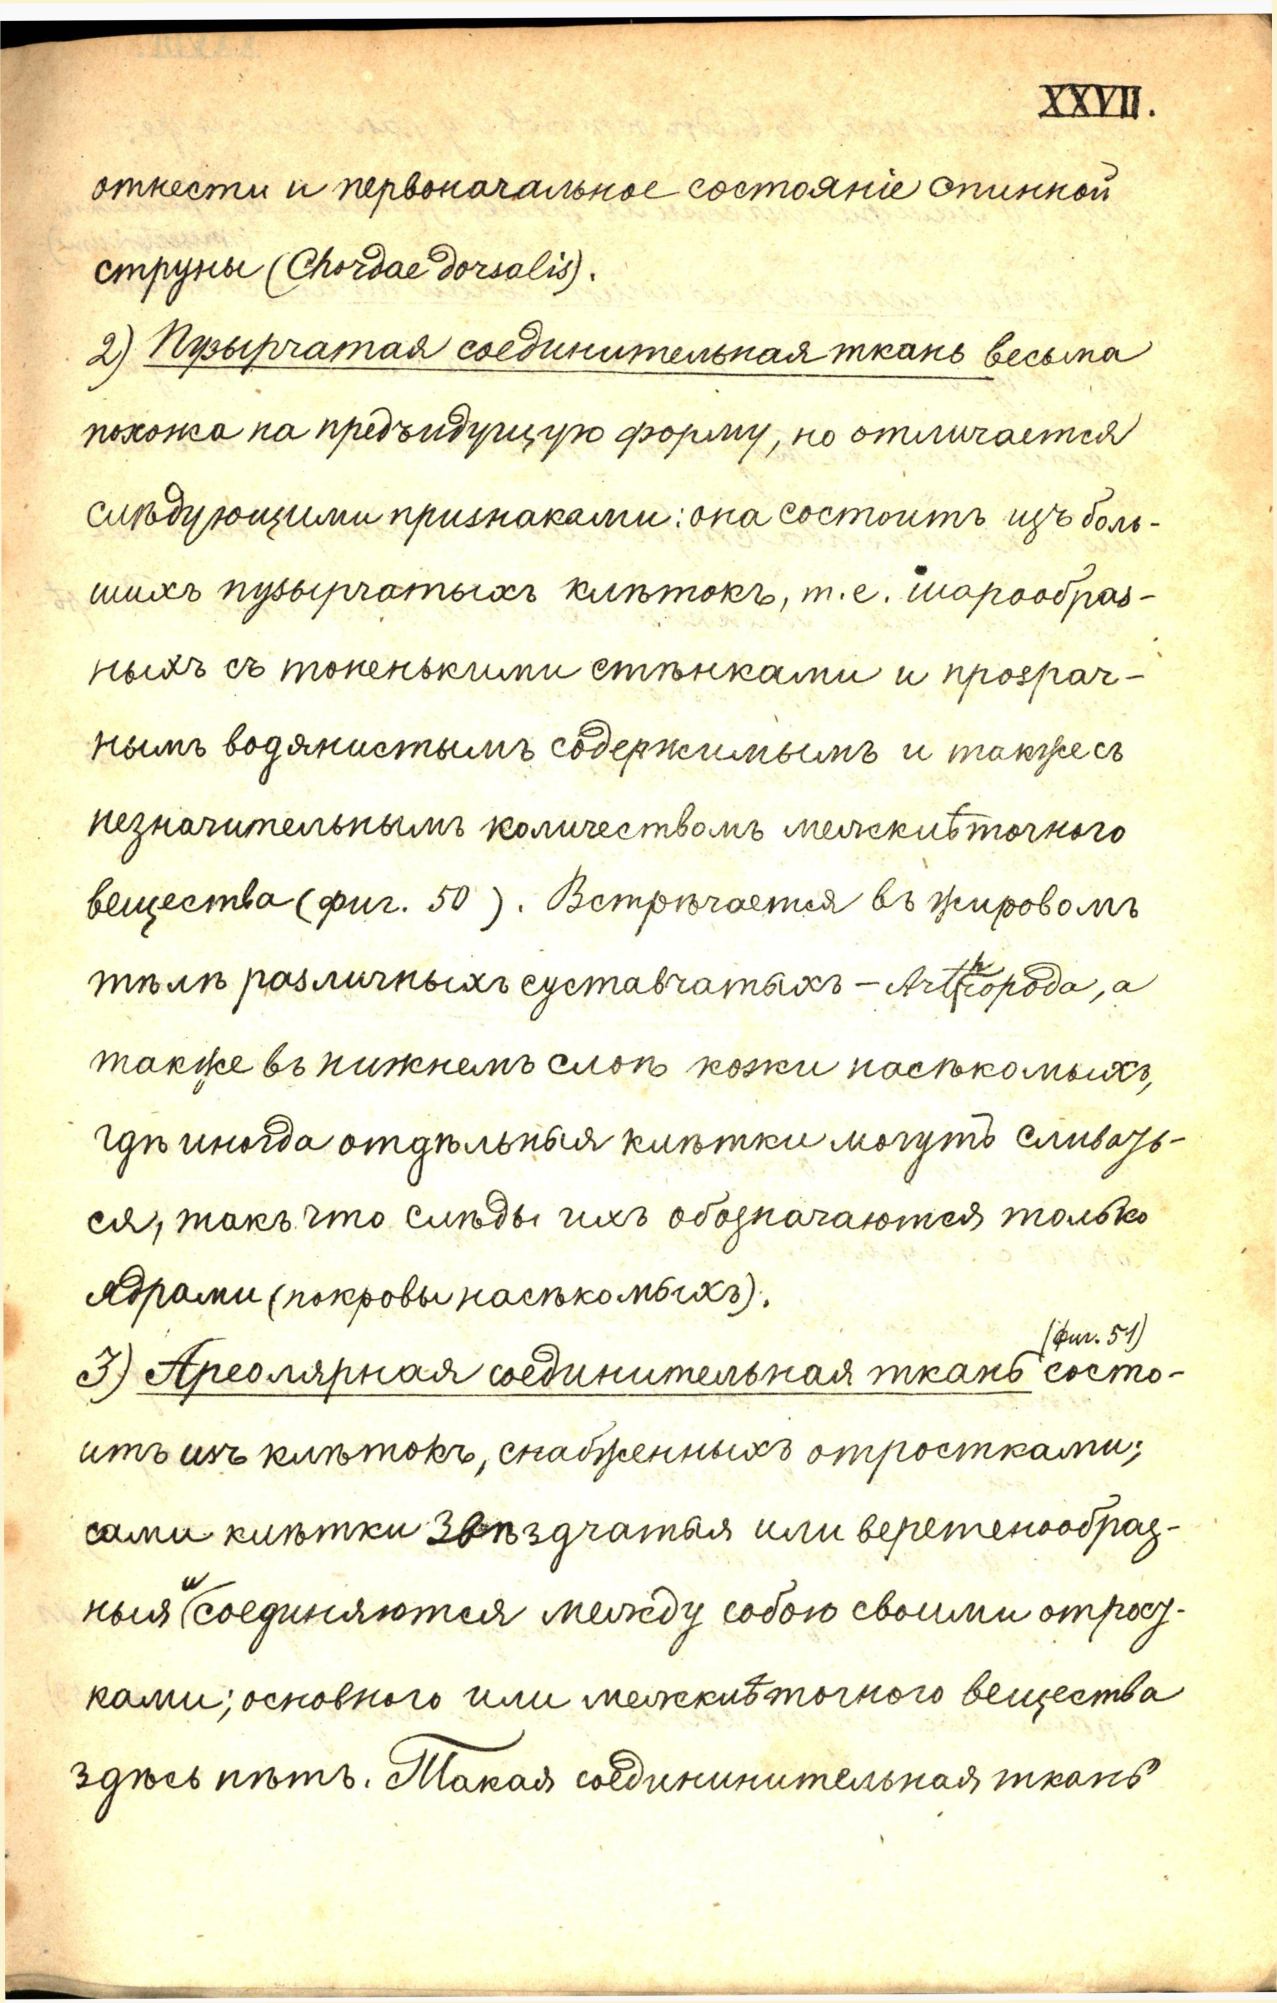 XXVII.
отнести и первоначальное состояніе спинной
струны (Chordae dorsalis).
2) Пузырчатая соединительная ткань весьма
похожа на предъидущую форму, но отличается
слѣдующими признаками: она состоитъ изъ боль-
шихъ пузырчатыхъ клѣтокъ, т.е. шарообраз-
ныхъ съ тоненькими стѣнками и прозрач-
нымъ водянистымъ содержимымъ и также съ
незначительнымъ количествомъ межклѣточного
вещества (фиг. 50). Встрѣчается въ жировомъ
тѣлѣ различныхъ суставчатыхъ – Arthropoda, а
также въ нижнемъ слоѣ кожи насѣкомыхъ,
гдѣ иногда отдѣльныя клѣтки могутъ сливать-
ся, такъ что слѣды ихъ обозначаются только
ядрами (покровы насѣкомыхъ).
(фиг. 51)
3) Ареолярная соединительная ткань состо-
итъ изъ клѣтокъ, снабженныхъ отростками;
сами клѣтки звѣздчатыя или веретенообраз-
ныя и соединяются между собою своими отрост-
ками; основного или межклѣточного вещества
здѣсь нѣтъ. Такая соединительная ткань